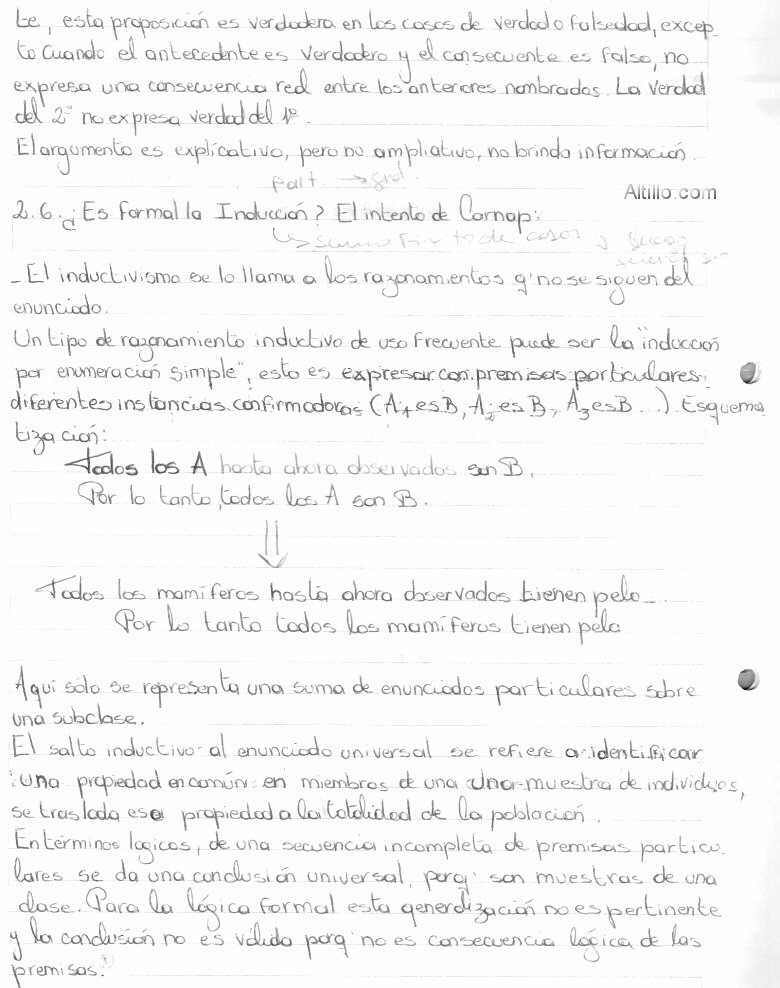 te, esta proposición es verdadera en los casos de verdad o falsedad, excep_
to cuando el antecedente es verdadero y el consecuente es falso, no
expresa una consecuencia real entre los anteriores nombrados. La verdad
del 2º no expresa verdad del 1º.
El argumento es explicativo, pero no ampliativo, no brinda información.
part. → gral.
Altillo.com
2.6. ¿Es formal la Inducción? El intento de Carnap:
de casos y
_ El inductivismo se lo llama a los razonamientos q' no se siguen del
enunciado.
Un tipo de razonamiento inductivo de uso frecuente puede ser la "inducción
por enumeración simple", esto es expresar con premisas particulares
diferentes instancias confirmadoras (A1 es B, A2 es B, A3 es B...). Esquema
tización:
Todos los A hasta ahora observados son B.
Por lo tanto, todos los A son B.
⇓
Todos los mamíferos hasta ahora observados tienen pelo_
Por lo tanto todos los mamíferos tienen pelo
Aquí sólo se representa una suma de enunciados particulares sobre
una subclase.
El salto inductivo al enunciado universal se refiere a identificar
una propiedad en común en miembros de una una muestra de individuos,
se traslada esa propiedad a la totalidad de la población.
En términos lógicos, de una secuencia incompleta de premisas particu_
lares se da una conclusión universal, porq' son muestras de una
clase. Para la lógica formal esta generalización no es pertinente
y la conclusión no es válida porq' no es consecuencia lógica de las
premisas.